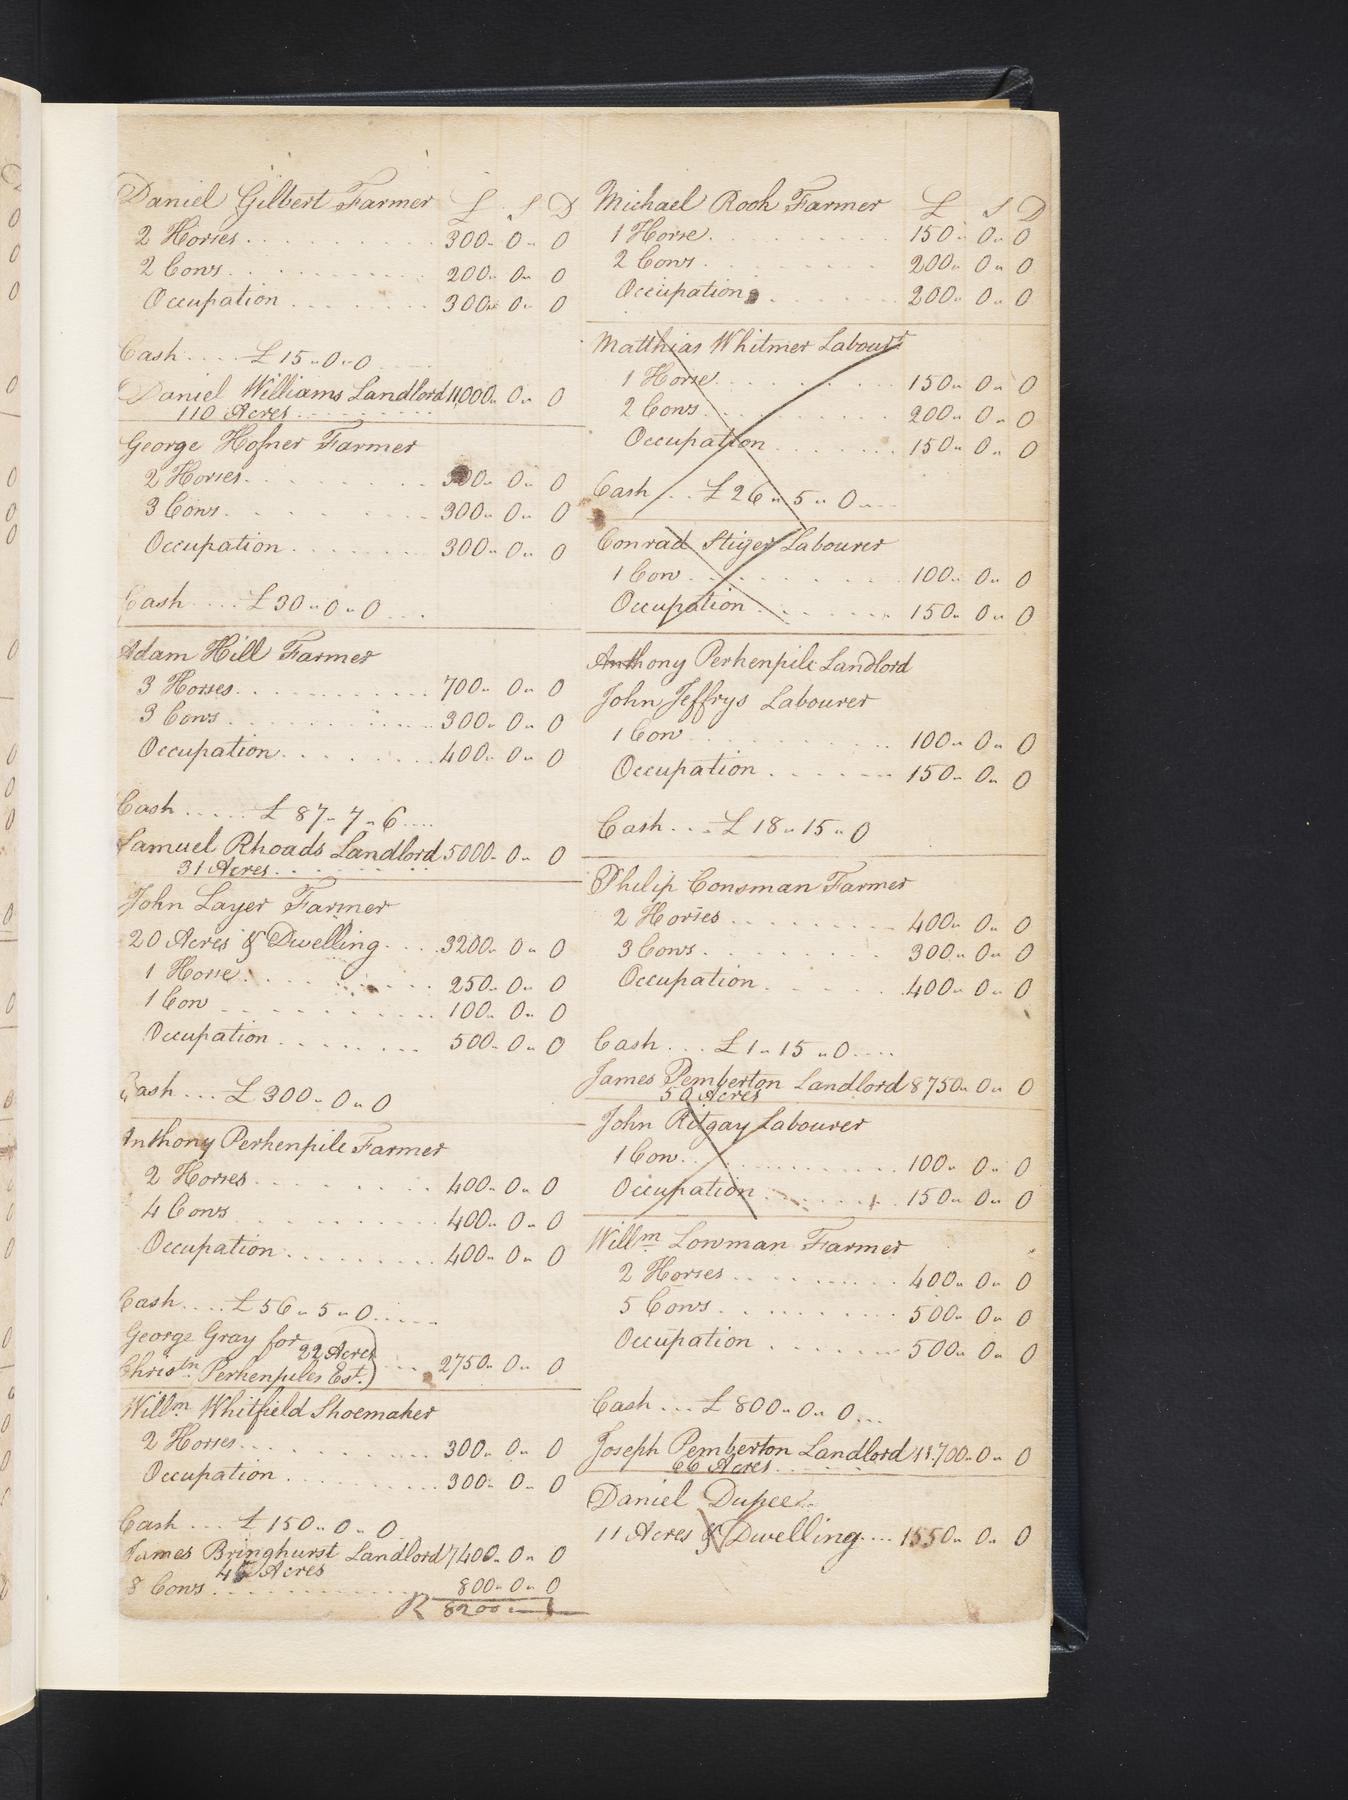 Daniel Gilbert Farmer £ S D
2 Horses . . . 300 " 0 " 0
2 Cows . . . 200 " 0 " 0
Occupation . . . 300 " 0 " 0
Cash . . . £ 15 " 0 " 0
Daniel Williams Landlord 11,000 " 0 " 0
110 Acres . . .
George Hofner Farmer
2 Horses . . . 300 " 0 " 0
3 Cows . . . 300 " 0 " 0
Occupation . . . 300 " 0 " 0
Cash . . . £ 30 " 0 " 0 . . .
Adam Hill Farmer
3 Horses . . . 700 " 0 " 0
3 Cows . . . 300 " 0 " 0
Occupation . . . 400 " 0 " 0
Cash . . . £ 87 " 7 " 6 . . .
Samuel Rhoads Landlord 5000 " 0 " 0
31 Acres . . .
John Layer Farmer
20 Acres & Dwelling . . . 3200 " 0 " 0
1 Horse . . . 250 " 0 " 0
1 Cow . . . 100 " 0 " 0
Occupation . . . 500 " 0 " 0
Cash . . . £ 300 " 0 " 0
Anthony Perhenpile Farmer
2 Horses . . . 400 " 0 " 0
4 Cows . . . 400 " 0 " 0
Occupation . . . 400 " 0 " 0
Cash . . . £ 56 " 5 " 0 . . .
George Gray for
22 Acres
Christn. Perhenpiles Est.) . . . 2750 " 0 " 0
Willm Whitfield Shoemaker
2 Horses . . . 300 " 0 " 0
Occupation . . . 300 " 0 " 0
Cash . . . £ 150 " 0 " 0
James Bringhurst Landlord 7400 " 0 " 0
Acres
8 Cows . . . 800 " 0 " 0
8200
Michael Rooh Farmer £ S D
1 Horse . . . 150 " 0 " 0
2 Cows . . . 200 " 0 " 0
Occupation . . . 200 " 0 " 0
Matthias Whitmer Labourr
1 Horse . . . 150 " 0 " 0
2 Cows . . . 200 " 0 " 0
Occupation . . . 150 " 0 " 0
Cash . . . £ 26 " 5 " 0 . . .
Conrad Stiger Labourer
1 Cow . . . 100 " 0 " 0
Occupation . . . 150 " 0 " 0
Anthony Perhenpile Landlord
John Jeffrys Labourer
1 Cow . . . 100 " 0 " 0
Occupation . . . 150 " 0 " 0
Cash . . . £ 18 " 15 " 0
Philip Consman Farmer
2 Horses . . . 400 " 0 " 0
3 Cows . . . 300 " 0 " 0
Occupation . . . 400 " 0 " 0
Cash . . . £ 1 " 15 " 0 . . .
James Pemberton Landlord 8750 " 0 " 0
50 Acres
John Ritgay Labourer
1 Cow . . . 100 " 0 " 0
Occupation . . . 150 " 0 " 0
Willm Lowman Farmer
2 Horses . . . 400 " 0 " 0
5 Cows . . . 500 " 0 " 0
Occupation . . . 500 " 0 " 0
Cash . . . £ 800 " 0 " 0 . . .
Joseph Pemberton Landlord 11,700 " 0 " 0
66 Acres . . .
Daniel Dupee
11 Acres & Dwelling . . . 1550 " 0 " 0